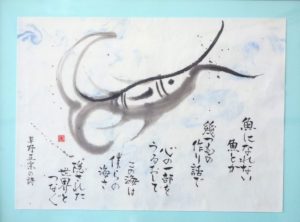 魚になれない
魚とか
幾つもの
作り話で
心の一部を
うるおして
この海は
僕らの
海さ
隠された
世界と
つなぐ
草野正宗の詩